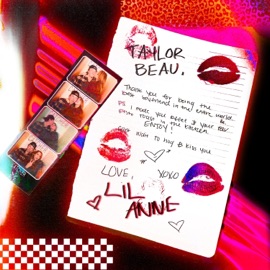 TAYLOR
BEAU.
THANK YOU FOR BEING THE
BEST BOYFRIEND IN THE ENTIRE WORLD.
PS I MADE YOU COFFEE & YOUR
IN THE KITCHEN
ENJOY!
TO HUG & KISS YOU
LOVE, XOXO
LIL
ANNE